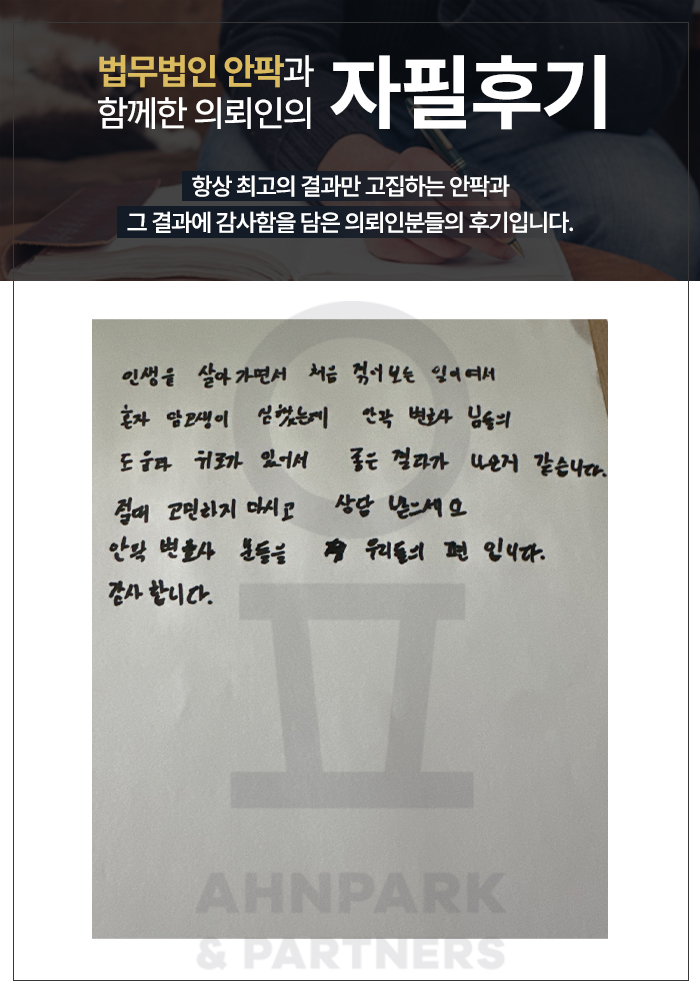 법무법인 안팍과
함께한 의뢰인의
자필후기
항상 최고의 결과만 고집하는 안팍과
그 결과에 감사함을 담은 의뢰인분들의 후기입니다.
인생을 살아 가면서 처음 겪어 보는 일이여서
혼자 맘고생이 심했는데 안팍 변호사 님들의
도움과 위로가 있어서 좋은 결과가 나온거 같습니다.
절대 고민하지 마시고 상담 받으세요
안팍 변호사 분들은 우리들의 편 입니다.
감사 합니다.
AHNPARK
& PARTNERS